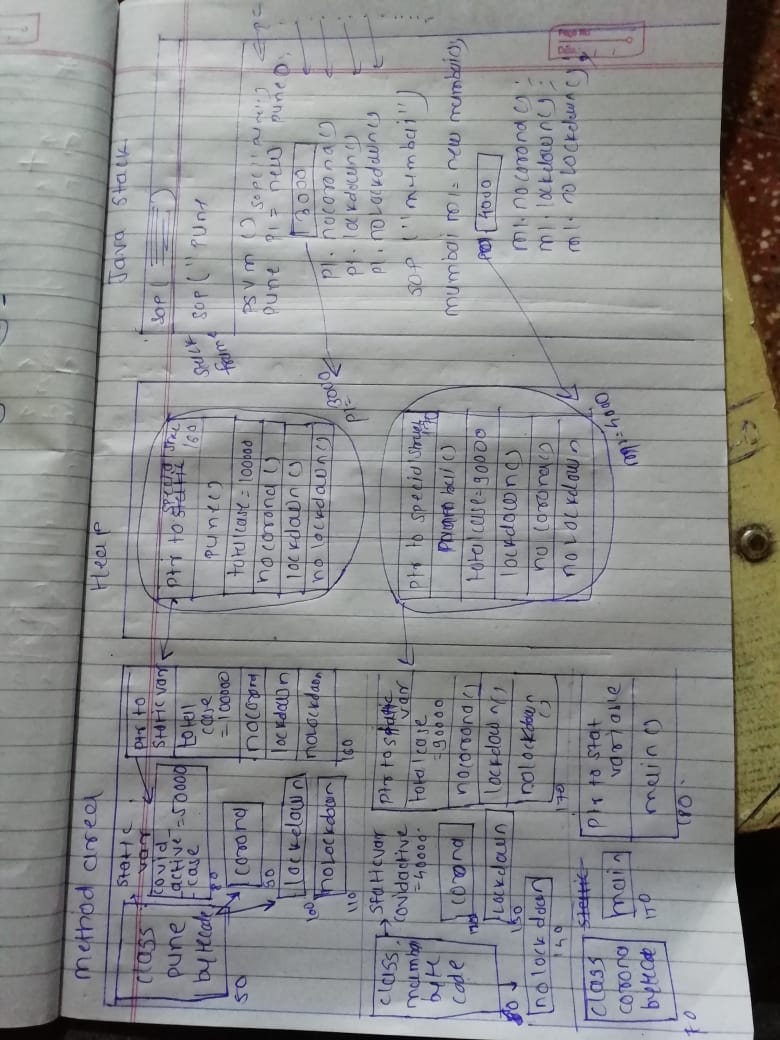 method area
Heap
Java stack
class
pune
bytecode
50
static
var
covid
active =50000
case
80
corona
90
lockdown
100
nolockdown
110
ptr to
static var
total
case
=100000
nocorona
lockdown
nolockdown
160
class
mumbai
byte
code
static var
covidactive
=40000
corona
lockdown
130
nolockdown
140
ptr to static
var
total case
=90000
nocorona()
lockdown()
nolockdown
()
170
class
corona
bytecode
70
static
main
150
ptr to stat
variable
main()
180
ptr to special struc
static
160
pune()
total case = 100000
nocorona()
lockdown()
nolockdown()
3000
p1=
ptr to special struct
170
total case=90000
lockdown()
nocorona()
nolockdown
m1=4000
stack
frame
SOP(
SOP("pune
PSVM () SOP("pune")
pune p1 = new pune();
3000
p1. nocorona()
p1. lockdown()
p1. nolockdown()
SOP ("mumbai")
mumbai m1= new mumbai();
4000
m1. nocorona();
m1. lockdown();
m1. nolockdown();